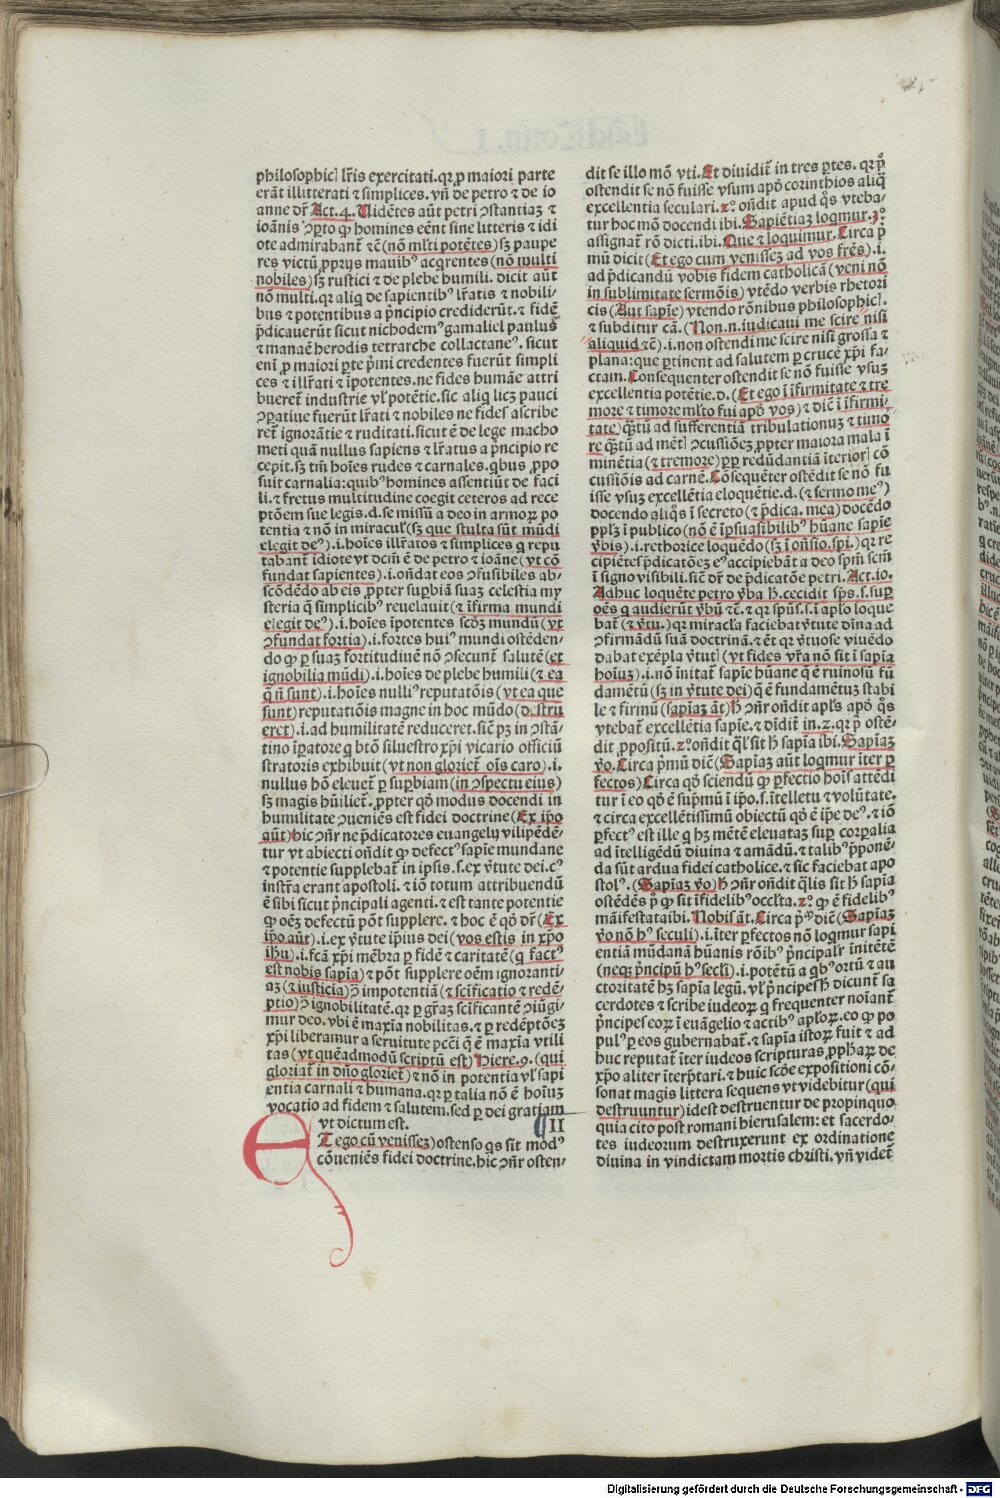 philosophicꝭ lr̃is exercitati. qꝛ ꝓ maiori parte
erãt illitterati ⁊ simplices. vñ de petro ⁊ de io
anne dr̃ Act.4. Uidẽtes aũt petri ↄstantiaꝫ ⁊
ioãnis ↄꝑto ꝙ homines eẽnt sine litteris ⁊ idi
ote admirabant̃ ⁊c̃ (nõ ml̃ti potẽtes) sꝫ paupe
res victũ ꝓprijs manibꝰ acq̃rentes (nõ multi
nobiles) sꝫ rustici ⁊ de plebe humili. dicit aũt
nõ multi. qꝛ aliq̃ de sapientibꝰ lr̃atis ⁊ nobili-
bus ⁊ potentibus a p̃ncipio crediderũt. ⁊ fidẽ
p̃dicauerũt sicut nichodemꝰ gamaliel paulus
⁊ manaẽ herodis tetrarche collactaneꝰ. sicut
eni ꝓ maiori ꝑte p̃mi credentes fuerũt simpli
ces ⁊ illr̃ati ⁊ ĩpotentes. ne fides humãe attri
bueret̃ industrie vl̃ potẽtie. sic aliq̃ licꝫ pauci
ↄꝑatiue fuerũt lr̃ati ⁊ nobiles ne fides ascribe
ret̃ ignorãtie ⁊ ruditati. sicut ẽ de lege macho
meti quã nullus sapiens ⁊ lr̃atus a p̃ncipio re
cepit. sꝫ tm̃ hoĩes rudes ⁊ carnales. q̃bus ꝓpo
suit carnalia: quibꝰ homines assentiũt de faci
li. ⁊ fretus multitudine coegit ceteros ad rece
ptõem sue legis. d. se missũ a deo in armoꝝ po
tentia ⁊ nõ in miraculꝭ (sꝫ que stulta sũt mũdi
elegit deꝰ) .i. hoĩes illr̃atos ⁊ simplices q̃ repu
tabant̃ idiote vt dcm̃ ẽ de petro ⁊ ioãne (vt cõ
fundat sapientes) .i. oñdat eos ↄfusibiles ab-
scõdẽdo ab eis ꝓpter suꝑbiã suaꝫ celestia my
steria q̃ simplicibꝰ reuelauit (⁊ ĩfirma mundi
elegit deꝰ) .i. hoĩes ĩpotentes scdꝫ mundũ (vt
ↄfundat fortia) .i. fortes huiꝰ mundi ostẽden-
do ꝙ ꝑ suaꝫ fortitudinẽ nõ ↄsecunt̃ salutẽ (et
ignobilia mũdi) .i. hoĩes de plebe humili (⁊ ea
q̃ ñ sunt) .i. hoĩes nulliꝰ reputatõis (vt ea que
sunt) reputatiõis magne in hoc mũdo (destru
eret) .i. ad humilitatẽ reduceret. sic̃ pꝫ in ↄstã-
tino ĩꝑatore q̃ btõ siluestro xp̃i vicario officiũ
stratoris exhibuit (vt non gloriet̃ oĩs caro) .i.
nullus hõ eleuet̃ ꝑ suꝑbiam (in ↄspectu eius)
sꝫ magis hũiliet̃. ꝓpter qõ modus docendi in
humilitate ↄueniẽs est fidei doctrine (Ex ip̃o
aũt) hic ↄñr ne p̃dicatores euangelij vilipẽdẽ-
tur vt abiecti oñdit ꝙ defectꝰ sapĩe mundane
⁊ potentie supplebat̃ in ipsis .s. ex v̾tute dei. cꝰ
instr̃a erant apostoli. ⁊ iõ totum attribuendũ
ẽ sibi sicut p̃ncipali agenti. ⁊ est tante potentie
ꝙ oẽꝫ defectũ põt supplere. ⁊ hoc ẽ qõ dr̃ (Ex
ip̃o aũt) .i. ex v̾tute ip̃ius dei (vos estis in xp̃o
ihũ) .i. fcã xp̃i mẽbra ꝑ fidẽ ⁊ caritatẽ (q̃ factꝰ
est nobis sapĩa) ⁊ põt supplere oẽm ignoranti-
aꝫ (⁊ iusticia) ↄ̃ impotentiã (⁊ sc̃ificatio ⁊ redẽ-
ptio) ↄ̃ ignobilitatẽ. qꝛ ꝑ gr̃aꝫ sc̃ificantẽ ↄiũgi-
mur deo. vbi ẽ maxĩa nobilitas. ⁊ ꝑ redẽptõeꝫ
xp̃i liberamur a seruitute pcc̃i q̃ ẽ maxĩa vtili
tas (vt quẽadmodũ scriptũ est) Hiere.9. (qui
gloriat̃ in dño gloriet̃) ⁊ nõ in potentia vl̃ sapi
entia carnali ⁊ humana. qꝛ ꝑ talia nõ ẽ hoĩuꝫ
vocatio ad fidem ⁊ salutem. sed ꝑ dei gratiam
vt dictum est. ¶ II
ET ego cũ venisseꝫ) ostenso q̃s sit modꝰ
cõueniẽs fidei doctrine. hic ↄñr osten-
dit se illo mõ vti. Et diuidit̃ in tres ꝑtes. qꝛ pͦ
ostendit se nõ fuisse vsum apd̾ corinthios aliq̃
excellentia seculari. 2ͦ. oñdit apud q̃s vteba-
tur hoc mõ docendi ibi. Sapiẽtiaꝫ loqmur. 3ͦ.
assignat̃ rõ dicti. ibi. Que ⁊ loquimur. Circa pͦ
mũ dicit (Et ego cum venisseꝫ ad vos fr̃es) .i.
ad p̃dicandũ vobis fidem catholicã (veni nõ
in sublimitate sermõis) vtẽdo verbis rhetori
cis (Aut sapĩe) vtendo rõnibus philosophicꝭ.
⁊ subditur cã. (Non .n. iudicaui me scire nisi
aliquid ⁊c̃) .i. non ostendi me scire nisi grossa ⁊
plana: que ꝑtinent ad salutem ꝑ crucẽ xp̃i fa-
ctam. Consequenter ostendit se nõ fuisse vsuꝫ
excellentia potẽtie. d. (Et ego ĩ ĩfirmitate ⁊ tre
more ⁊ timore ml̃to fui apd̾ vos) ⁊ dic̃ ĩ ĩfirmi-
tate) q̃tũ ad sufferentiã tribulationuꝫ ⁊ timo
re q̃tũ ad mẽtꝭ ↄcussiõeꝫ ꝓpter maiora mala ĩ
minẽtia (⁊ tremore) ꝓp̃ redũdantiã ĩteriorꝭ cõ
cussiõis ad carnẽ. Cõsequẽter ostẽdit se nõ fu
isse vsuꝫ excellẽtia eloquẽtie. d. (⁊ sermo meꝰ)
docendo aliq̃s ĩ secreto (⁊ p̃dica. mea) docẽdo
pplꝫ ĩ publico (nõ ẽ ĩp̃suasibilibꝰ hũane sapĩe
v̾bis) .i. rethorice loquẽdo (sꝫ ĩ oñsio. spĩ.) qꝛ re
cipiẽtes p̃dicatõeꝫ eꝰ accipiebãt a deo spm̃ scm̃
ĩ signo visibili. sic̃ dr̃ de p̃dicatõe petri. Act.10.
Adhuc loquẽte petro v̾ba h̾. cecidit sp̃s .s. suꝑ
oẽs q̃ audierũt v̾bũ ⁊c̃. ⁊ qꝛ spũs .s. ĩ aplõ loque
bat̃ (⁊ v̾tu.) qꝛ miracl̃a faciebat v̾tute diĩna ad
ↄfirmãdũ suã doctrinã. ⁊ ẽt qꝛ v̾tuose viuẽdo
dabat exẽpla v̾tutꝭ (vt fides vr̃a nõ sit ĩ sapĩa
hoĩuꝫ) .i. nõ initat̃ sapĩe hũane q̃ ẽ ruinosũ fũ
damẽtũ (sꝫ in v̾tute dei) q̃ ẽ fundamẽtuꝫ stabi
le ⁊ firmũ (sapĩaꝫ ãt) h̾ ↄñr oñdit apl̃s apd̾ q̃s
vtebat̃ excellẽtia sapĩe. ⁊ diĩdit̃ in.2. qꝛ pͦ ostẽ-
dit ꝓpositũ. 2ͦ. oñdit q̃l̃ sit h̾ sapĩa ibi. Sapĩaꝫ
v̾o. Circa p̃mũ dic̃ (Sapĩaꝫ aũt loqmur ĩter ꝑ
fectos) Circa qõ sciendũ ꝙ ꝑfectio hoĩs attẽdi
tur ĩ eo qõ ẽ sup̃mũ ĩ ip̃o .s. ĩtelletu ⁊ volũtate.
⁊ circa excellẽtissimũ obiectũ qõ ẽ ip̃e deꝰ. ⁊ iõ
ꝑfectꝰ est ille q̃ hꝫ mẽtẽ eleuataꝫ suꝑ corꝑalia
ad ĩtelligẽdũ diuina ⁊ amãdũ. ⁊ talibꝰ ꝓponẽ-
da sũt ardua fidei catholice. ⁊ sic faciebat apo
stolꝰ. (Sapĩaꝫ v̾o) h̾ ↄñr oñdit q̃lis sit h̾ sapĩa
ostẽdẽs pͦ ꝙ sit ĩfidelibꝰ occl̃ta. 2ͦ. ꝙ ẽ fidelibꝰ
mãifestata ibi. Nobis ãt. Circa pͦ dic̃ (Sapĩaꝫ
v̾o nõ hꝰ seculi) .i. ĩter ꝑfectos nõ loqmur sapi
entiã mũdanã hũanis rõibꝰ p̃ncipalr̃ ĩnitẽtẽ
(neqꝫ p̃ncipũ hꝰ secl̃i) .i. potẽtũ a q̃bꝰ ortũ ⁊ au
ctoritatẽ hꝫ sapĩa legũ. vl̃ p̃ncipes h̾ dicunt̃ sa
cerdotes ⁊ scribe iudeoꝝ q̃ frequenter noĩant̃
p̃ncipes eoꝝ ĩ euãgelio ⁊ actibꝰ apl̃oꝝ. eo ꝙ po
pulꝰ ꝑ eos gubernabat̃. ⁊ sapĩa istoꝝ fuit ⁊ ad
huc reputat̃ ĩter iudeos scripturas ꝓphaꝝ de
xp̃o aliter ĩterp̃tari. ⁊ huic scd̾e expositioni cõ-
sonat magis littera sequens vt videbitur (qui
destruuntur) idest destruentur de propinquo
quia cito post romani hierusalem: et sacerdo-
tes iudeorum destruxerunt ex ordinatione
diuina in vindictam mortis christi. vñ videt̃
Digitalisierung gefördert durch die Deutsche Forschungsgemeinschaft - DFG